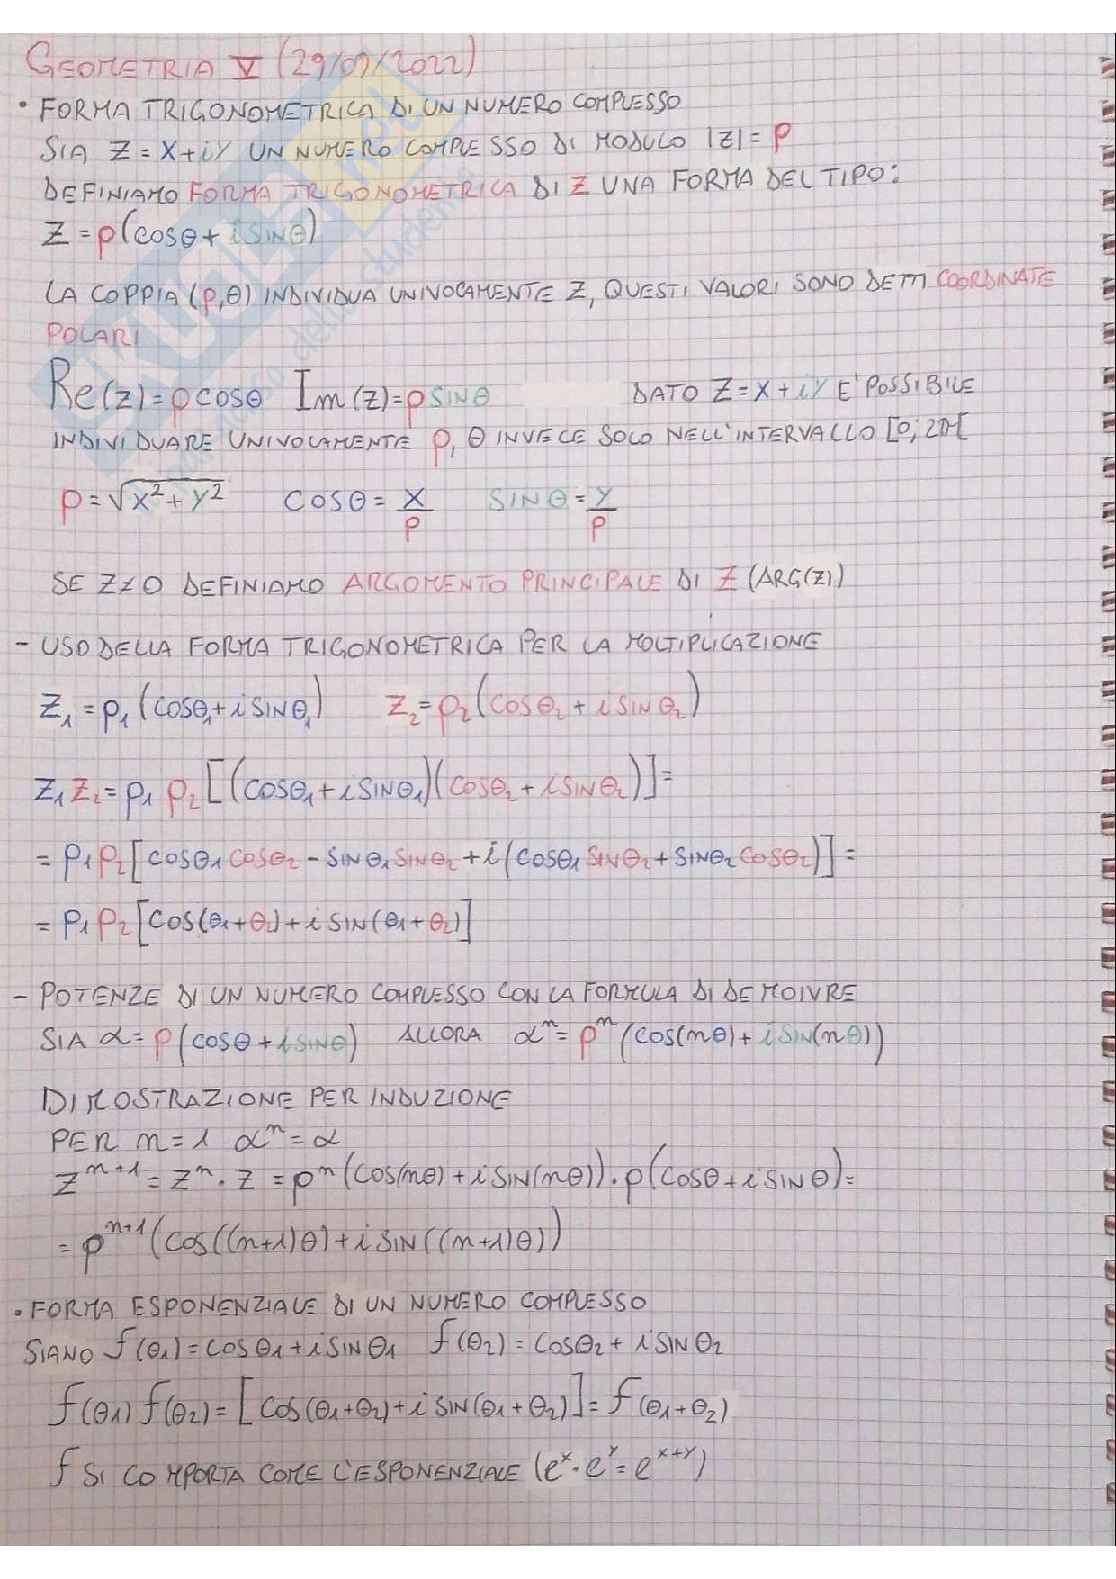 GEOMETRIA V (29/09/2022)
• FORMA TRIGONOMETRICA DI UN NUMERO COMPLESSO
SIA Z = X+iY UN NUMERO COMPLESSO DI MODULO |Z| = ρ
DEFINIAMO FORMA TRIGONOMETRICA DI Z UNA FORMA DEL TIPO:
Z = ρ(cosθ + i SINθ)
LA COPPIA (ρ,θ) INDIVIDUA UNIVOCAMENTE Z, QUESTI VALORI SONO DETTI COORDINATE
POLARI
Re(z) = ρ cosθ Im(z) = ρ SINθ DATO Z = X + iY E' POSSIBILE
INDIVIDUARE UNIVOCAMENTE ρ, θ INVECE SOLO NELL'INTERVALLO [0; 2π[
ρ = √(X² + Y²) COSθ = X/ρ SINθ = Y/ρ
SE Z≠0 DEFINIAMO ARGOMENTO PRINCIPALE DI Z (ARG(Z))
- USO DELLA FORMA TRIGONOMETRICA PER LA MOLTIPLICAZIONE
Z₁ = ρ₁(cosθ₁ + i SINθ₁) Z₂ = ρ₂(cosθ₂ + i SINθ₂)
Z₁Z₂ = ρ₁ρ₂[(cosθ₁ + i SINθ₁)(cosθ₂ + i SINθ₂)] =
= ρ₁ρ₂[cosθ₁cosθ₂ - SINθ₁SINθ₂ + i(cosθ₁SINθ₂ + SINθ₂cosθ₂)] =
= ρ₁ρ₂[cos(θ₁+θ₂) + i SIN(θ₁+θ₂)]
- POTENZE DI UN NUMERO COMPLESSO CON LA FORMULA DI DE MOIVRE
SIA α = ρ(cosθ + i SINθ) ALLORA αⁿ = ρⁿ(cos(nθ) + i SIN(nθ))
DIMOSTRAZIONE PER INDUZIONE
PER n = 1 αⁿ = α
Zⁿ⁺¹ = Zⁿ · Z = ρⁿ(cos(nθ) + i SIN(nθ)) · ρ(cosθ + i SINθ) =
= ρⁿ⁺¹(cos((n+1)θ) + i SIN((n+1)θ))
• FORMA ESPONENZIALE DI UN NUMERO COMPLESSO
SIANO f(θ₁) = cosθ₁ + i SINθ₁ f(θ₂) = cosθ₂ + i SINθ₂
f(θ₁) f(θ₂) = [cos(θ₁+θ₂) + i SIN(θ₁+θ₂)] = f(θ₁+θ₂)
f SI COMPORTA COME L'ESPONENZIALE (eˣ · eʸ = eˣ⁺ʸ)